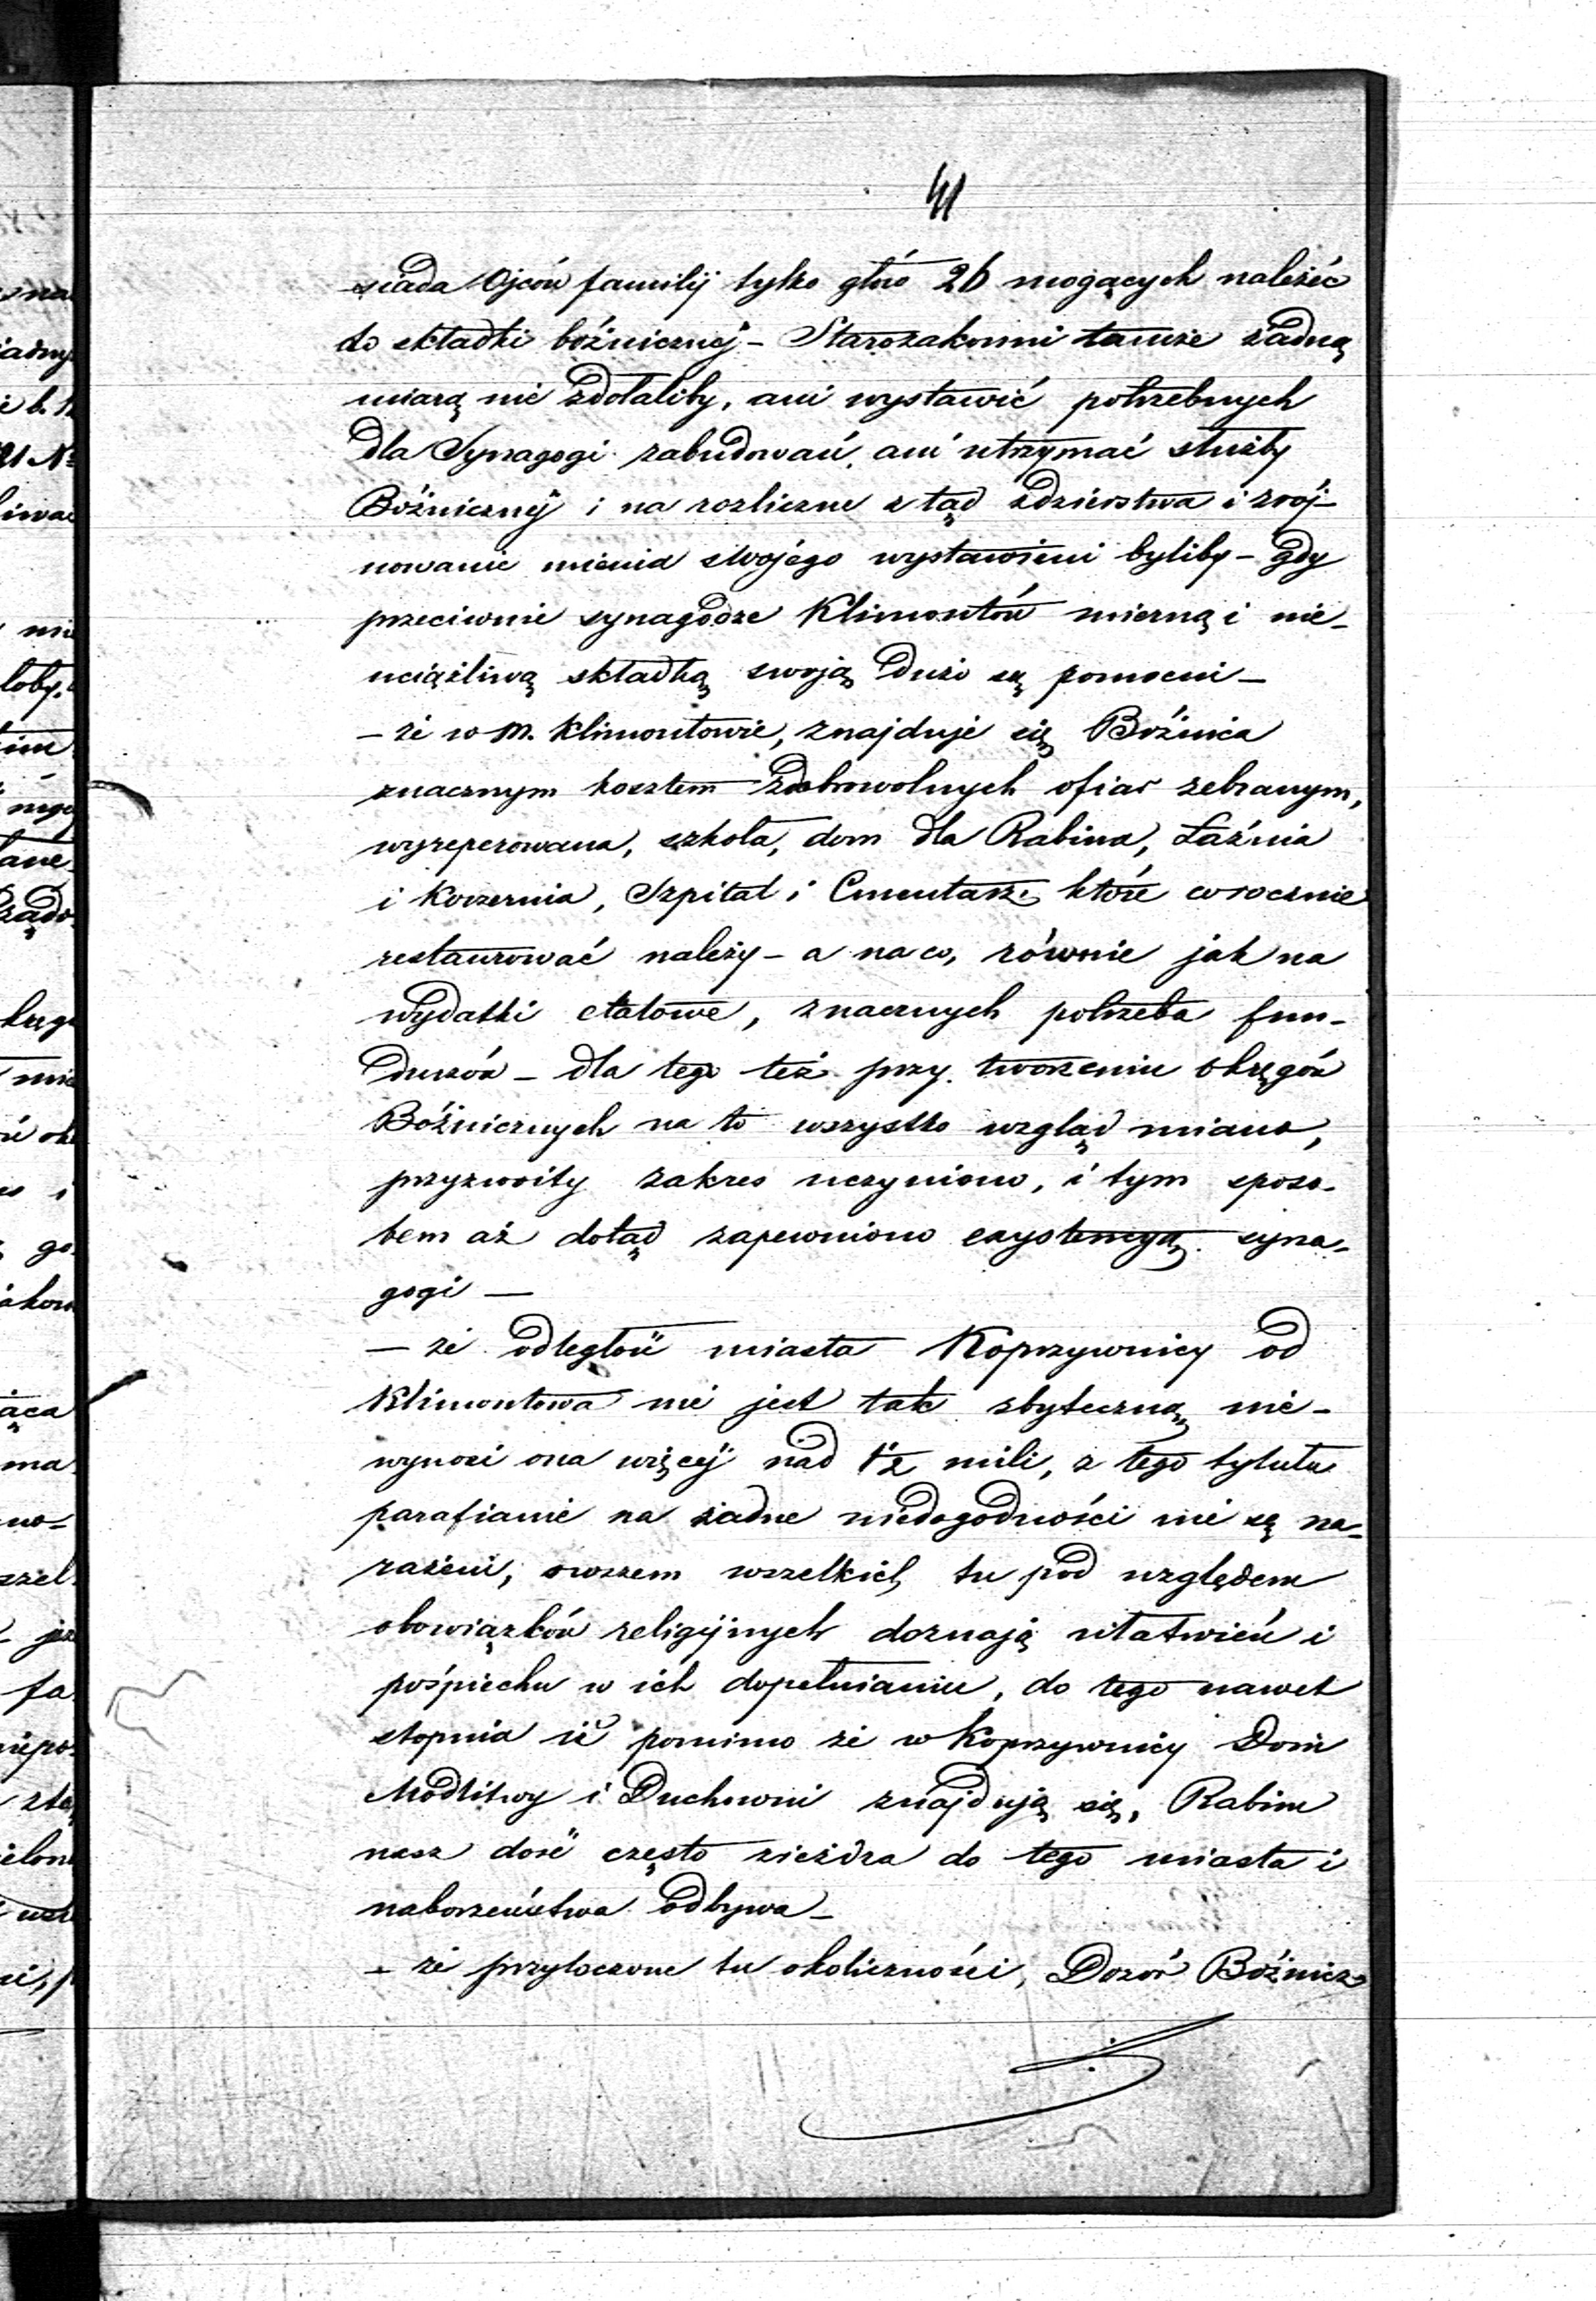 41
siada Ojców familij tylko głów 26 mogących należéć
do składki bóźnicznéj – Starozakonni tamże żadną
miarą nie zdołaliby, ani wystawić potrzebnych
dla Synagogi zabudowań, ani utrzymać służby
Bóżnicznéj i na rozliczne z tąd zdzierstwa i zrój-
nowanie mienia swojego wystawieni byliby – gdy
przeciwnie synagodze Klimontów mierną i nie-
uciążliwą składką swoją dużo są pomocni –
– że w m. Klimontowie, znajduje się Bóżnica
znacznym kosztem z dobrowolnych ofiar zebranym,
wyreperowana, szkoła, dom dla Rabina, Łaźnia
i Koszernia, Szpital i Cmentarze które corocznie
restaurować należy – a na co, równie jak na
wydatki etatowe, znacznych potrzeba fun-
duszów – dla tego też przy tworzeniu okręgów
Bóżnicznych na to wszystko wzgląd miano,
przyzwoity zakres uczyniono, i tym sposo-
bem aż dotąd zapewniono exystencyą syna-
gogi —
— że odległość miasta Koprzywnicy od
Klimontowa nie jest tak zbyteczną, nie-
wynosi ona więcéj nad 1½ mili, z tego tytułu
parafianie na żadne niedogodności nie są na-
rażeni; owszem wszelkich tu pod względem
obowiązków religijnych doznają ułatwień i
pośpiechu w ich dopełnianiu, do tego nawet
stopnia iż pomimo że w Koprzywnicy Dom
Modlitwy i Duchowni znajdują się, Rabin
nasz dość często zjeżdża do tego miasta i
nabożeństwa odbywa –
– że przytoczone tu okoliczności, Dozór Bóżnicz